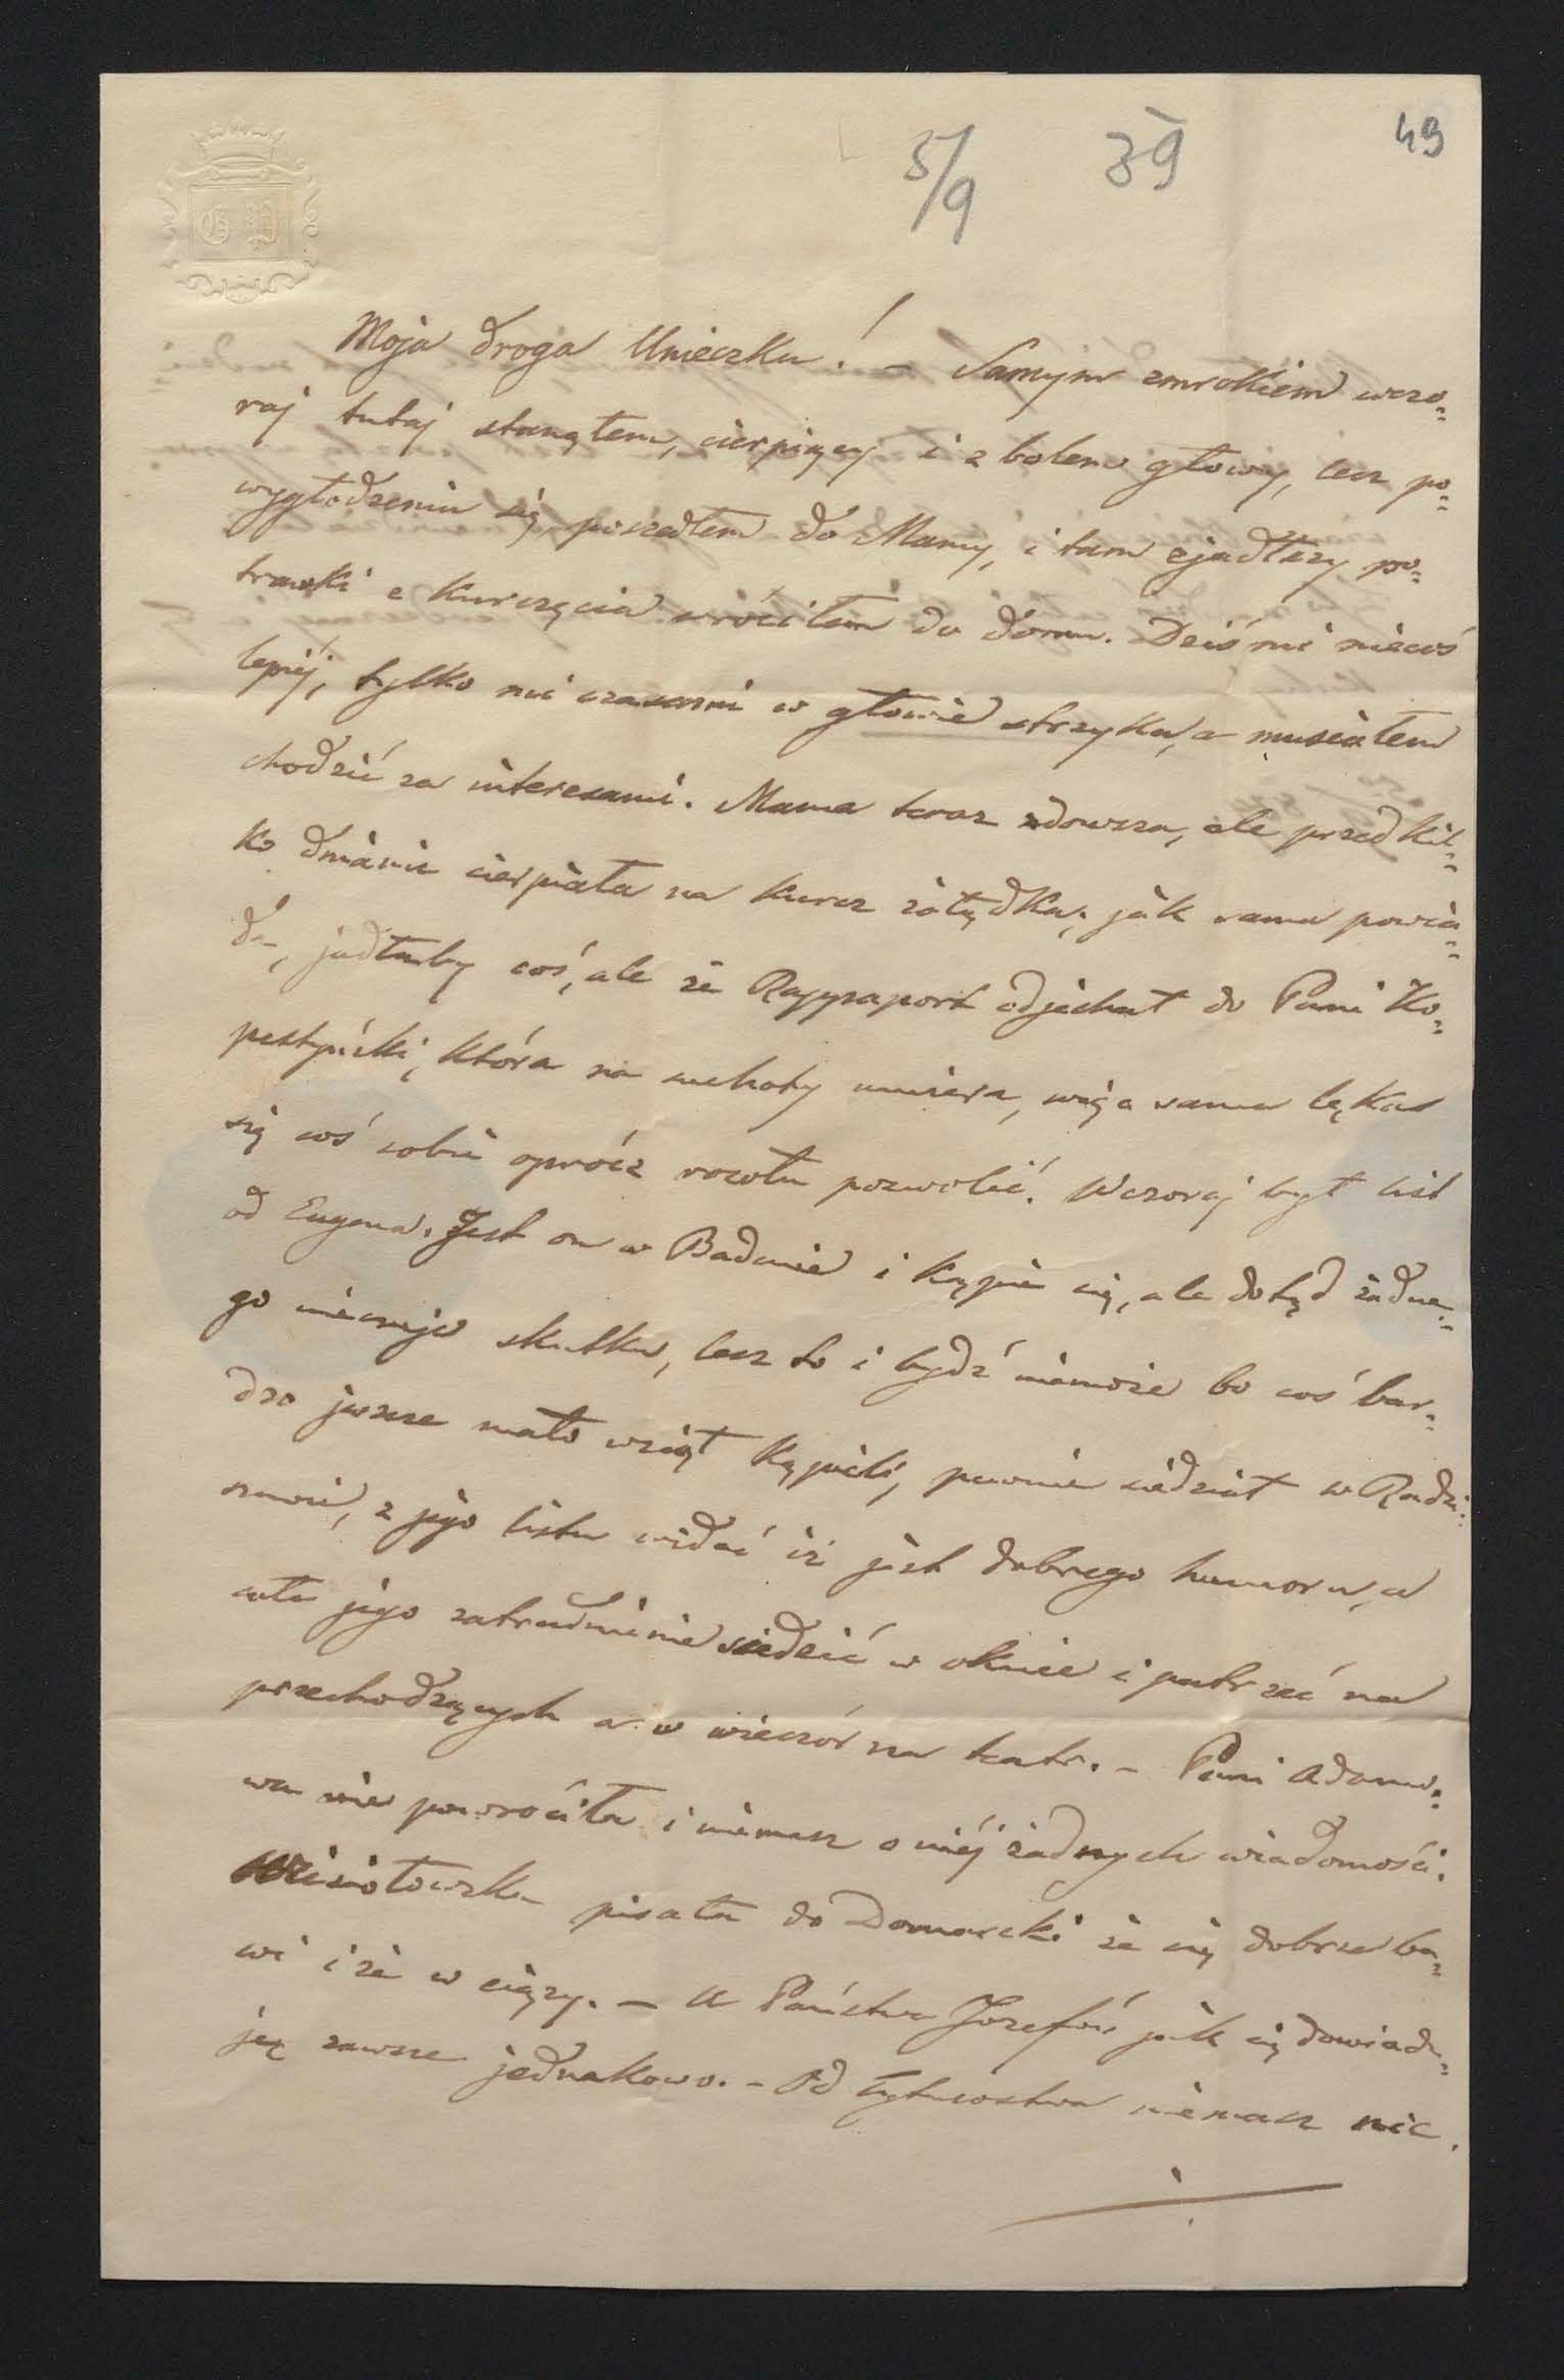 49
5/9 39
G D
Moja droga Unieczku! – Samym zmrokiem wczo=
raj tutaj stanąłem, cierpiący i z bolem głowy, lecz po=
wygłodzeniu się poszedłem do Mamy, i tam zjadłszy po=
trawki z kurczęcia wróciłem do domu. Dziś mi niecoś
lepiéj, tylko mi czasami w głowie strzyka, a musiałem
chodzić za interesami. Mama teraz zdowsza, ale przed kil=
ko dniami cierpiała na kurcz żołądka; jak sama powia=
da, jadłaby coś, ale że Rappaport odjechał do Pani Ko=
która na suchoty umiera, więc sama lęka
się coś sobie oprócz rosołu pozwolić. Wczoraj był list
od Eugena. Jest on w Badenie i kąpie się, ale dotąd żadne=
go nieczuje skutku, lecz to i bydź niemoże bo coś bar=
dzo jeszcze mało wziął kąpieli, pewnie siedział w Radzi=
z jego listu widać iż jest dobrego humoru, a
całe jego zatrudnienie siedzieć w oknie i patrzeć na
przechodzących a w wieczór na teatr. – Pani Adamo=
wa nie powróciła i niemasz o niéj żadnych wiadomości.
pisała do Domarcki że się dobrze ba=
wi i że w ciąży. – U Państwa Józefów jak się dowiadu=
ję zawsze jednakowo. – Od niemasz nic.